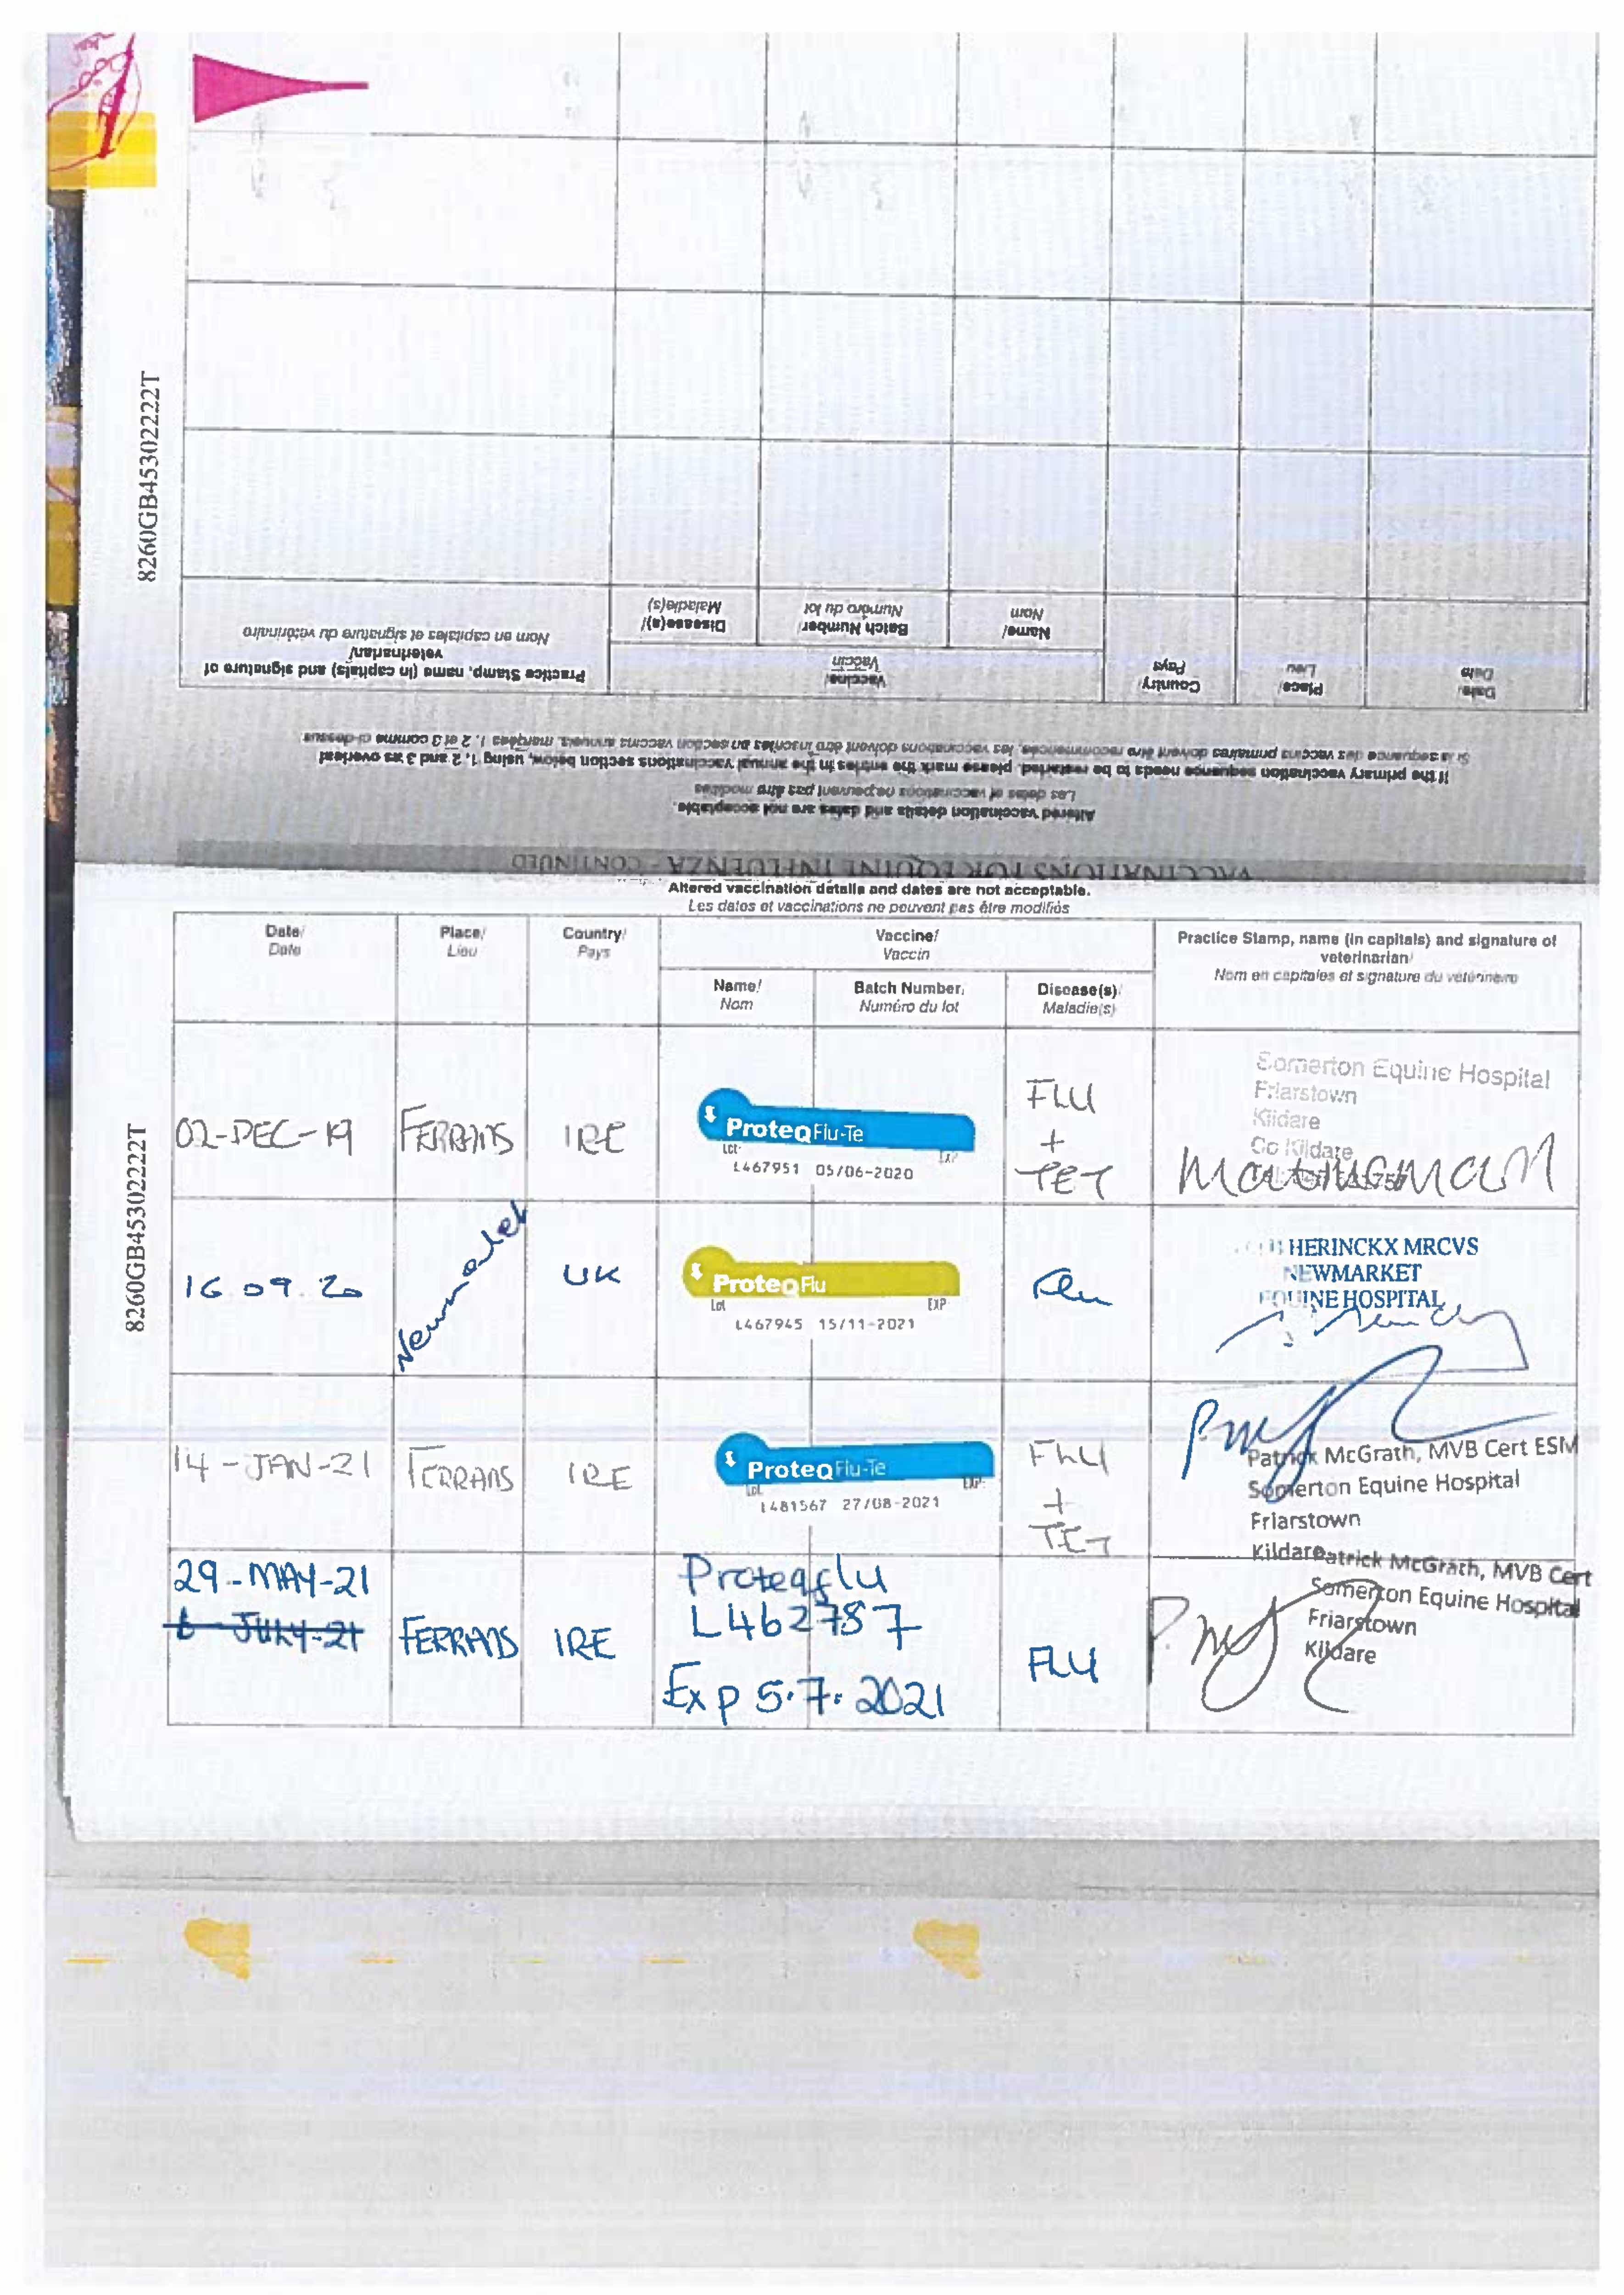 8260GB45302222T
VACCINATIONS FOR EQUINE INFLUENZA - CONTINUED
Altered vaccination details and dates are not acceptable.
Les dates et vaccinations ne peuvent pas être modifiés
If the primary vaccination sequence needs to be restarted, please mark the entries in the annual vaccinations section below, using 1, 2 and 3 as overleaf
Si la séquence des vaccins primaires doivent être recommencées, les vaccinations doivent être inscrites en section vaccins annuels, marquées 1, 2 et 3 comme ci-dessus
Date/ Place/ Country/ Vaccine/ Practice Stamp, name (in capitals) and signature of veterinarian/
Date Lieu Pays Vaccin Nom en capitales et signature du vétérinaire
Name/ Batch Number/ Disease(s)/
Nom Numéro du lot Maladie(s)
Altered vaccination details and dates are not acceptable.
Les dates et vaccinations ne peuvent pas être modifiés
8260GB45302222T
Date/ Place/ Country/ Vaccine/ Practice Stamp, name (in capitals) and signature of
Date Lieu Pays Vaccin veterinarian/
Nom en capitales et signature du vétérinaire
Name/ Batch Number/ Disease(s)/
Nom Numéro du lot Maladie(s)
Somerton Equine Hospital
Friarstown
Kildare
Co Kildare
02-DEC-19 FERRANS IRE ProteqFlu-Te FLU + TET
Lot EXP
L467951 05/06-2020
16 09 20 Newmarket UK ProteqFlu Flu
Lot EXP
L467945 15/11-2021
HERINCKX MRCVS
NEWMARKET
EQUINE HOSPITAL
14-JAN-21 FERRANS IRE ProteqFlu-Te FLU + TET
Lot EXP
L481567 27/08-2021
Patrick McGrath, MVB Cert ESM
Somerton Equine Hospital
Friarstown
Kildare
29-MAY-21 Proteqflu
JULY-21 FERRANS IRE L462787 FLU
Exp 5.7.2021
Patrick McGrath, MVB Cert
Somerton Equine Hospital
Friarstown
Kildare